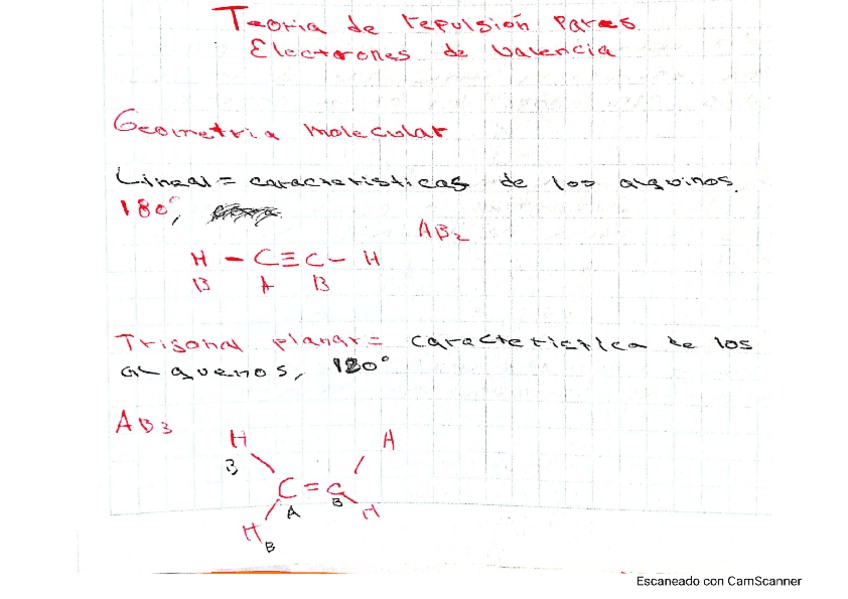 Teoria de repulsión Pares
Electrones de valencia
Geometria molecular
Lineal = caracteristicas de los alquinos.
180°,
AB2
H - C≡C - H
B A B
Trigonal planar = caracteristica de los
alquenos, 120°
AB3
H A
B
C = C
A B
H H
B
Escaneado con CamScanner